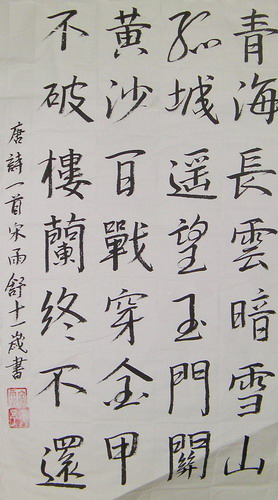 青海長雲暗雪山
孤城遥望玉門關
黃沙百戰穿金甲
不破樓蘭終不還
唐詩一首宋雨舒十一歲書